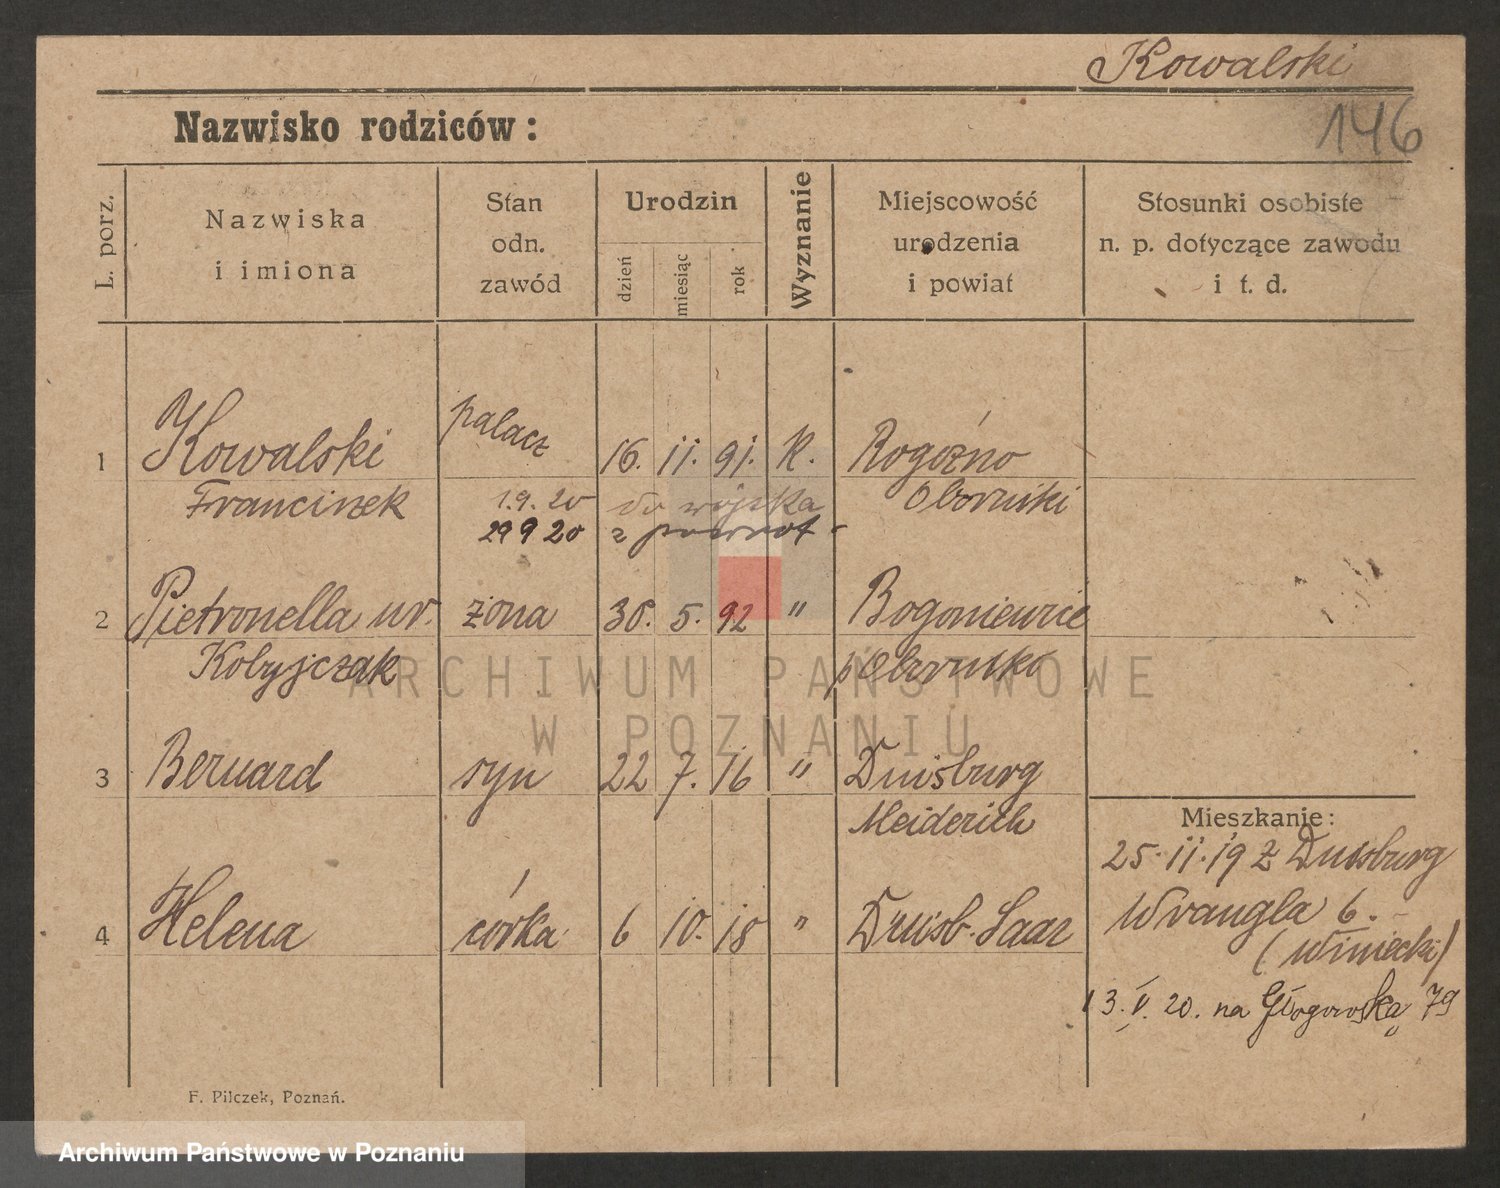 Kowalski
146
Nazwisko rodziców:
L. porz.
Nazwiska
i imiona
Stan
odn.
zawód
Urodzin
dzień
miesiąc
rok
Wyznanie
Miejscowość
urodzenia
i powiat
Stosunki osobiste
n. p. dotyczące zawodu
i t. d.
1 Kowalski palacz 16. 11. 91. K. Rogoźno
Francinek 1.9.20 do wojska Oborniki
29 9 20 z powrot
2 Pietronella ur. żona 30. 5. 92 " Bogoniewice
Kobyjczak p Obornika
ARCHIWUM PAŃSTWOWE
W POZNANIU
3 Bernard syn 22 7. 16 " Duisburg
Meiderich
Mieszkanie:
25. 11. 19 z Duisburg
4 Helena córka 6 10. 18 " Duisb. Saar
Wrangla 6.
(Winiecki)
13. V. 20. na Głogowską 79
F. Pilczek, Poznań.
Archiwum Państwowe w Poznaniu